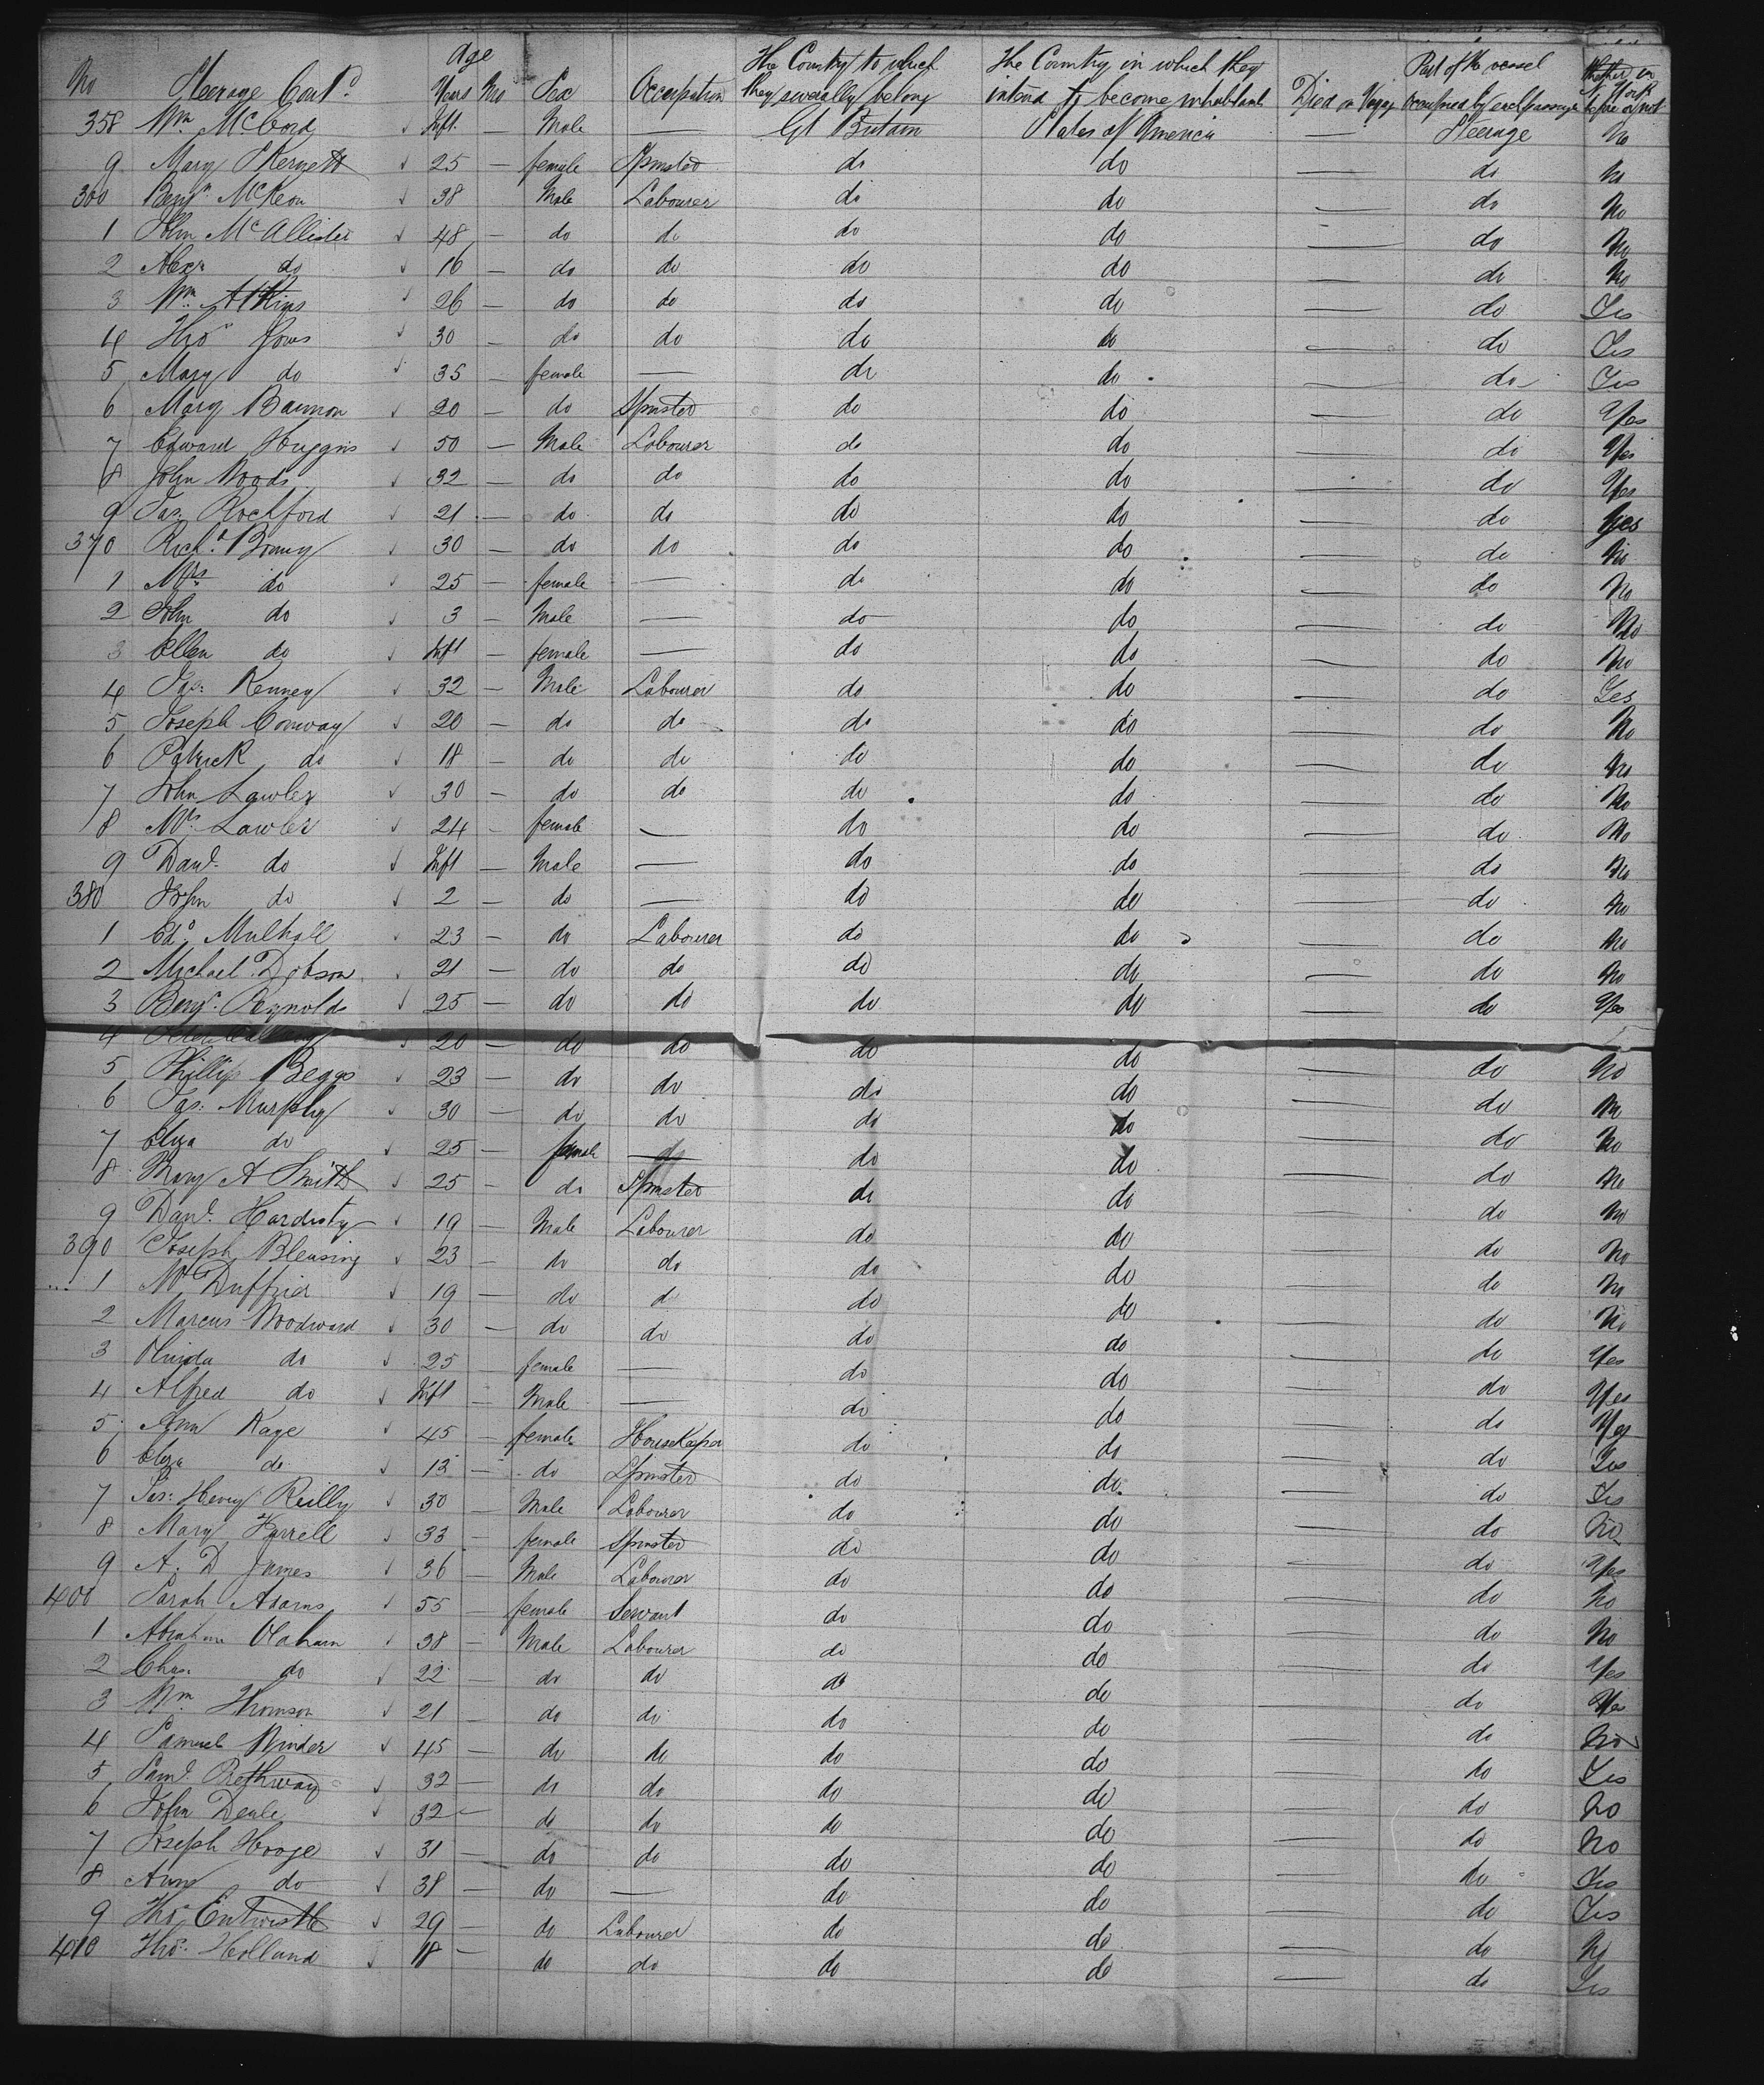 No Steerage Contd. Age Years Mo Sex Occupation The Country to which they severally belong The Country in which they intend to become inhabitants Died on Voyage Part of the vessel occupied by each passenger Whether in N York before or not
358 Wm McCord Inft. — Male — Gt Britain States of America — Steerage No
9 Mary 25 — female Spinster do do — do No
360 Benjn McKeon 38 Male Labourer do do — do No
1 John McAllister 48 — do do do do — do No
2 Alexr do 16 — do do do do — do No
3 Wm Atkins 26 — do do do do — do Yes
4 Thos Jones 30 — do do do do — do Yes
5 Mary do 35 — female — do do — do Yes
6 Mary Bannon 20 — do Spinster do do — do Yes
7 Edward Huggins 50 — Male Labourer do do — do Yes
8 John Woods 32 — do do do do — do Yes
9 Jas. Rochford 21 — do do do do — do Yes
370 Richd 30 — do do do do — do No
1 Mrs do 25 — female — do do — do No
2 John do 3 — Male — do do — do No
3 Ellen do Inft — female — do do — do No
4 Jas: Kenney 32 — Male Labourer do do — do Yes
5 Joseph Conway 20 — do do do do — do No
6 Patrick do 18 — do do do do — do No
7 John Lawler 30 — do do do do — do No
8 Mrs Lawler 24 — female — do do — do No
9 Danl. do Inft — Male — do do — do No
380 John do 2 — do — do do — do No
1 Edd Mulhall 23 — do Labourer do do — do No
2 Michael Dobson 21 — do do do do — do No
3 Benjn. Reynolds 25 — do do do do — do Yes
4 20 — do do do do — do No
5 Phillip Beggs 23 — do do do do — do No
6 Jas: Murphy 30 — do do do do — do No
7 Eliza do 25 — female do do — do No
8 Mary A Smith 25 — do Spinster do do — do No
9 Danl. Hardisty 19 — Male Labourer do do — do No
390 Joseph Bleasing 23 — do do do do — do No
1 19 — do do do do — do No
2 Marcus Woodward 30 — do do do do — do Yes
3 do 25 — female — do do — do Yes
4 Alfred do Inft — Male — do do — do Yes
5 Ann Kaye 45 — female Housekeeper do do — do Yes
6 Eliza do 13 — do Spinster do do — do Yes
7 Jas: Henry Reilly 30 — Male Labourer do do — do No
8 Mary Farrell 33 — female Spinster do do — do Yes
9 A. D James 36 — Male Labourer do do — do No
400 Sarah Adams 55 — female Servant do do — do No
1 Abraham Olaham 38 — Male Labourer do do — do Yes
2 Chas. do 22 — do do do do — do Yes
3 Wm Thomson 21 — do do do do — do No
4 Samuel Winder 45 — do do do do — do Yes
5 Saml. Rethway 32 — do do do do — do No
6 John Deale 32 — do do do do — do No
7 Joseph Hooge 31 — do do do do — do Yes
8 Ann do 38 — do — do do — do Yes
9 Thos Entwistle 29 — do Labourer do do — do No
410 Thos. Holland 18 — do do do do — do Yes